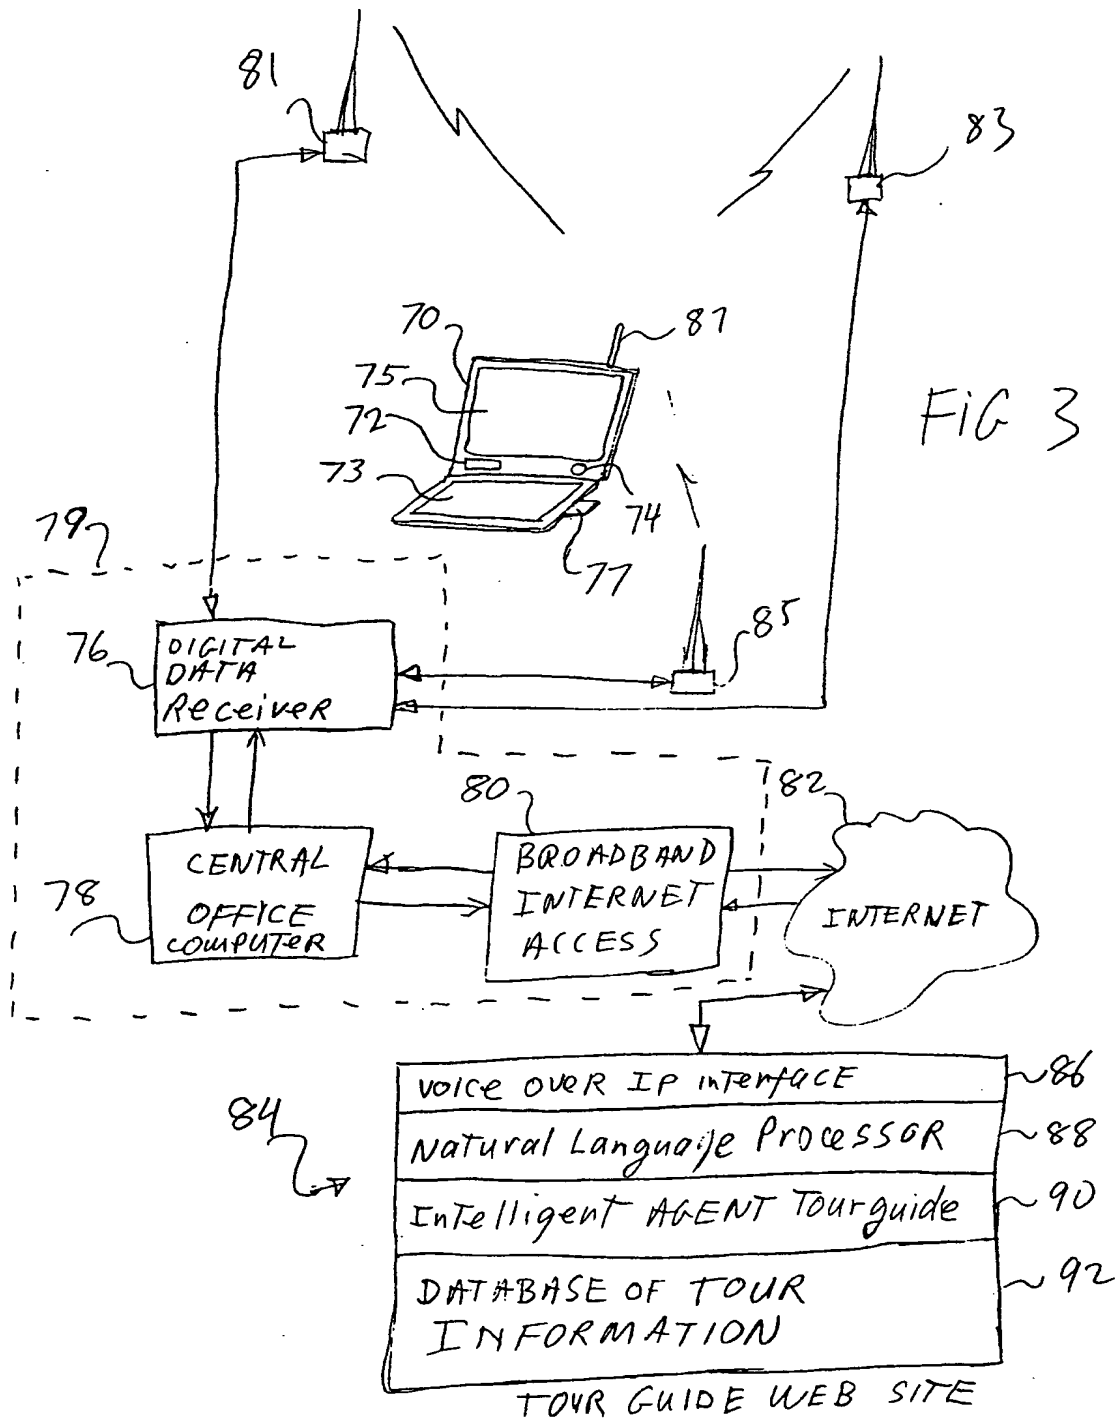 81
83
70
87
75
72
73
74
77
FIG 3
79
76
DIGITAL
DATA
Receiver
85
80
82
78
CENTRAL
OFFICE
COMPUTER
BROADBAND
INTERNET
ACCESS
INTERNET
84
VOICE OVER IP INTERFACE
86
Natural Language Processor
88
Intelligent AGENT Tourguide
90
DATABASE OF TOUR
INFORMATION
92
TOUR GUIDE WEB SITE